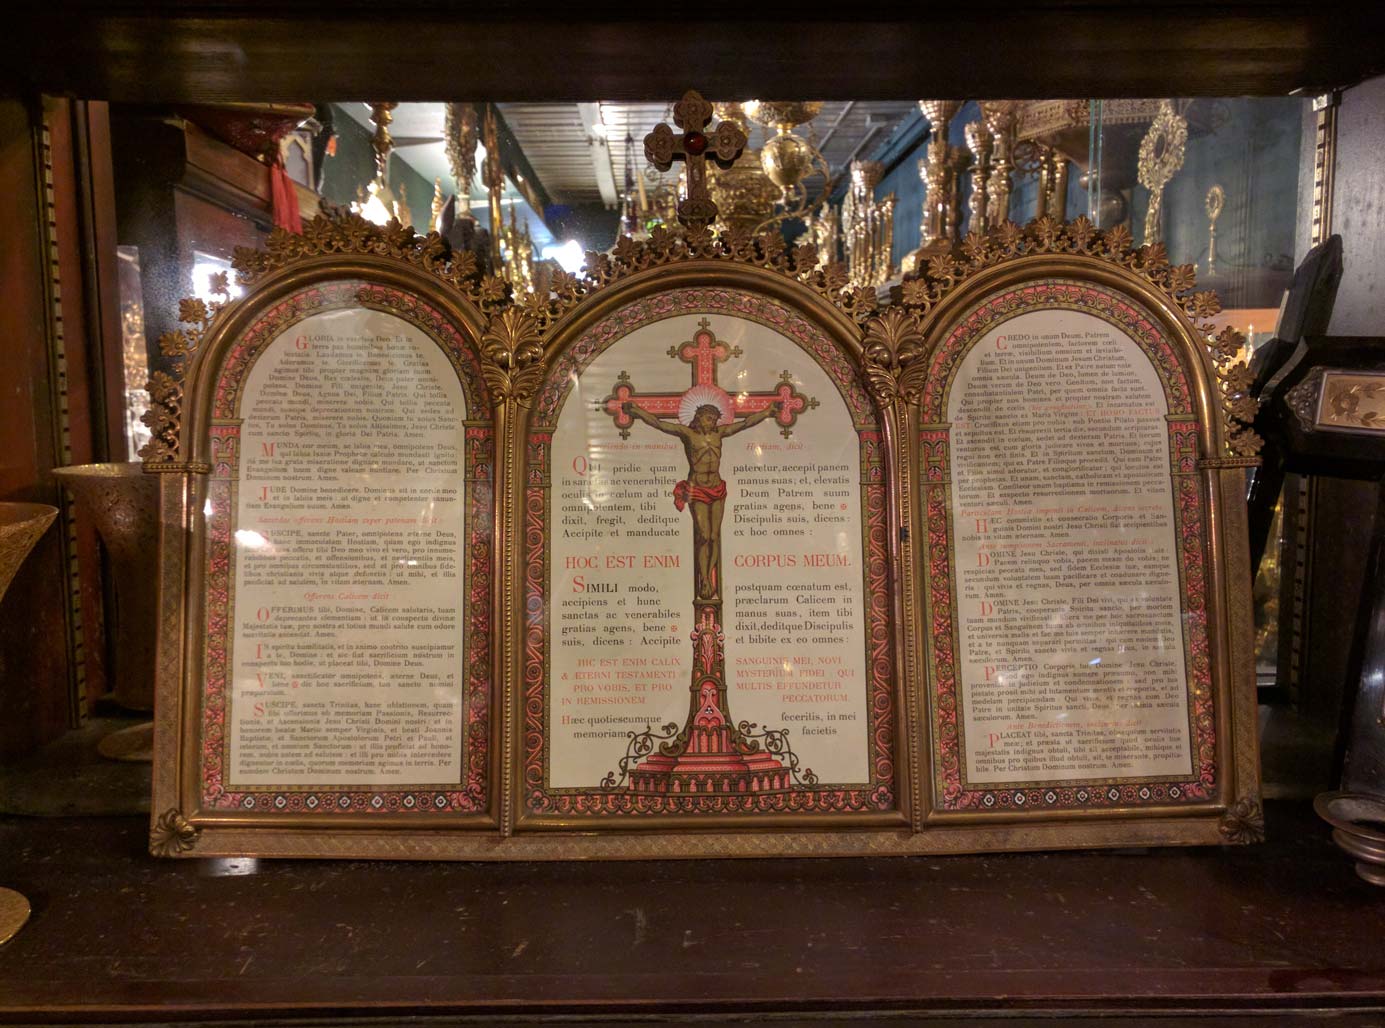 GLORIA in excelsis Deo. Et in
terra pax hominibus bonæ vo-
luntatis. Laudamus te. Benedicimus te.
Adoramus te. Glorificamus te. Gratias
agimus tibi propter magnam gloriam tuam.
Domine Deus, Rex cœlestis, Deus pater omni-
potens. Domine, Fili unigenite, Jesu Christe.
Domine Deus, Agnus Dei, Filius Patris. Qui tollis
peccata mundi, miserere nobis. Qui tollis peccata
mundi, suscipe deprecationem nostram. Qui sedes ad
dexteram Patris, miserere nobis. Quoniam tu solus Sanc-
tus, Tu solus Dominus, Tu solus Altissimus, Jesu Christe,
cum Sancto Spiritu, in gloria Dei Patris. Amen.
MUNDA cor meum, ac labia mea, omnipotens Deus,
qui labia Isaiæ Prophetæ calculo mundasti ignito:
ita me tua grata miseratione dignare mundare, ut sanctum
Evangelium tuum digne valeam nuntiare. Per Christum
Dominum nostrum. Amen.
JUBE Domine benedicere. Dominus sit in corde meo
et in labiis meis: ut digne et competenter annun-
tiem Evangelium suum. Amen.
Sacerdos offerens Hostiam super patenam dicit:
SUSCIPE, sancte Pater, omnipotens æterne Deus,
hanc immaculatam Hostiam, quam ego indignus
famulus tuus offero tibi Deo meo vivo et vero, pro innume-
rabilibus peccatis, et offensionibus, et negligentiis meis,
et pro omnibus circumstantibus, sed et pro omnibus fide-
libus christianis vivis atque defunctis: ut mihi, et illis
proficiat ad salutem, in vitam æternam. Amen.
Offerens Calicem dicit:
OFFERIMUS tibi, Domine, Calicem salutaris, tuam
deprecantes clementiam: ut in conspectu divinæ
Majestatis tuæ, pro nostra et totius mundi salute cum odore
suavitatis ascendat. Amen.
IN spiritu humilitatis, et in animo contrito suscipiamur
a te, Domine: et sic fiat sacrificium nostrum in
conspectu tuo hodie, ut placeat tibi, Domine Deus.
VENI, sanctificator omnipotens, æterne Deus, et
bene ✠ dic hoc sacrificium, tuo sancto nomini
præparatum.
SUSCIPE, sancta Trinitas, hanc oblationem, quam
tibi offerimus ob memoriam Passionis, Resurrec-
tionis, et Ascensionis Jesu Christi Domini nostri: et in
honorem beatæ Mariæ semper Virginis, et beati Joannis
Baptistæ, et Sanctorum Apostolorum Petri et Pauli, et
istorum, et omnium Sanctorum: ut illis proficiat ad hono-
rem, nobis autem ad salutem: et illi pro nobis intercedere
dignentur in cœlis, quorum memoriam agimus in terris. Per
eumdem Christum Dominum nostrum. Amen.
Tenendo in manibus Hostiam, dicit:
QUI pridie quam pateretur, accepit panem
in sanctas ac venerabiles manus suas; et, elevatis
oculis in cœlum ad te Deum Patrem suum
omnipotentem, tibi gratias agens, bene ✠
dixit, fregit, deditque Discipulis suis, dicens:
Accipite et manducate ex hoc omnes:
HOC EST ENIM CORPUS MEUM.
SIMILI modo, postquam cœnatum est,
accipiens et hunc præclarum Calicem in
sanctas ac venerabiles manus suas, item tibi
gratias agens, bene ✠ dixit, deditque Discipulis
suis, dicens: Accipite et bibite ex eo omnes:
HIC EST ENIM CALIX SANGUINIS MEI, NOVI
& ÆTERNI TESTAMENTI MYSTERIUM FIDEI: QUI
PRO VOBIS, ET PRO MULTIS EFFUNDETUR
IN REMISSIONEM PECCATORUM.
Hæc quotiescumque feceritis, in mei
memoriam facietis
CREDO in unum Deum, Patrem
omnipotentem, factorem cœli et
terræ, visibilium omnium et invisibi-
lium. Et in unum Dominum Jesum Christum,
Filium Dei unigenitum. Et ex Patre natum ante
omnia sæcula. Deum de Deo, lumen de lumine,
Deum verum de Deo vero. Genitum, non factum,
consubstantialem Patri, per quem omnia facta sunt.
Qui propter nos homines, et propter nostram salutem,
descendit de cœlis. ET HOMO FACTUS
EST. Crucifixus etiam pro nobis: sub Pontio Pilato passus
et sepultus est. Et resurrexit tertia die, secundum Scripturas.
Et ascendit in cœlum, sedet ad dexteram Patris. Et iterum
venturus est cum gloria judicare vivos et mortuos, cujus
regni non erit finis. Et in Spiritum Sanctum, Dominum et
vivificantem; qui ex Patre Filioque procedit. Qui cum Patre
et Filio simul adoratur, et conglorificatur; qui locutus est
per prophetas. Et unam, sanctam, catholicam et apostolicam
Ecclesiam. Confiteor unum baptisma in remissionem pecca-
torum. Et exspecto resurrectionem mortuorum. Et vitam
venturi sæculi. Amen.
Particulam Hostiæ imponit in Calicem, dicens secrete
HÆC commixtio et consecratio Corporis et San-
guinis Domini nostri Jesu Christi fiat accipientibus
nobis in vitam æternam. Amen.
Ante sumptionem Sacramenti, inclinatus dicit:
DOMINE Jesu Christe, qui dixisti Apostolis tuis:
Pacem relinquo vobis, pacem meam do vobis; ne
respicias peccata mea, sed fidem Ecclesiæ tuæ, eamque
secundum voluntatem tuam pacificare et coadunare digne-
ris. Qui vivis et regnas, Deus, per omnia sæcula sæculo-
rum. Amen.
DOMINE Jesu Christe, Fili Dei vivi, qui ex voluntate
Patris, cooperante Spiritu sancto, per mortem
tuam mundum vivificasti: libera me per hoc sacrosanctum
Corpus et Sanguinem tuum ab omnibus iniquitatibus meis,
et universis malis et fac me tuis semper inhærere mandatis,
et a te nunquam separari permittas: qui cum eodem Deo
Patre, et Spiritu sancto vivis et regnas Deus, in sæcula
sæculorum. Amen.
PERCEPTIO Corporis tui, Domine Jesu Christe,
quod ego indignus sumere præsumo, non mihi
proveniat in judicium et condemnationem: sed pro tua
pietate prosit mihi ad tutamentum mentis et corporis, et ad
medelam percipiendam. Qui vivis et regnas cum Deo
Patre in unitate Spiritus sancti, Deus per omnia sæcula
sæculorum. Amen.
Ante Benedictionem, inclinatus dicit
PLACEAT tibi, sancta Trinitas, obsequium servitutis
meæ; et præsta ut sacrificium quod oculis tuæ
majestatis indignus obtuli, tibi sit acceptabile, mihique et
omnibus pro quibus illud obtuli, sit, te miserante, propitia-
bile. Per Christum Dominum nostrum. Amen.